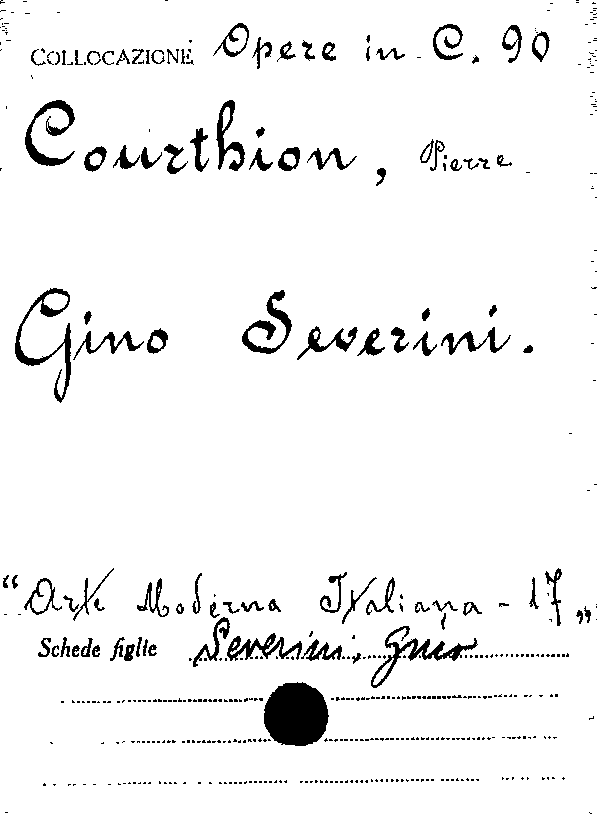 COLLOCAZIONE Opere in C. 90
Courthion, Pierre
Gino Severini.
"Arte Moderna Italiana - 17"
Schede figlie Severini, Gino